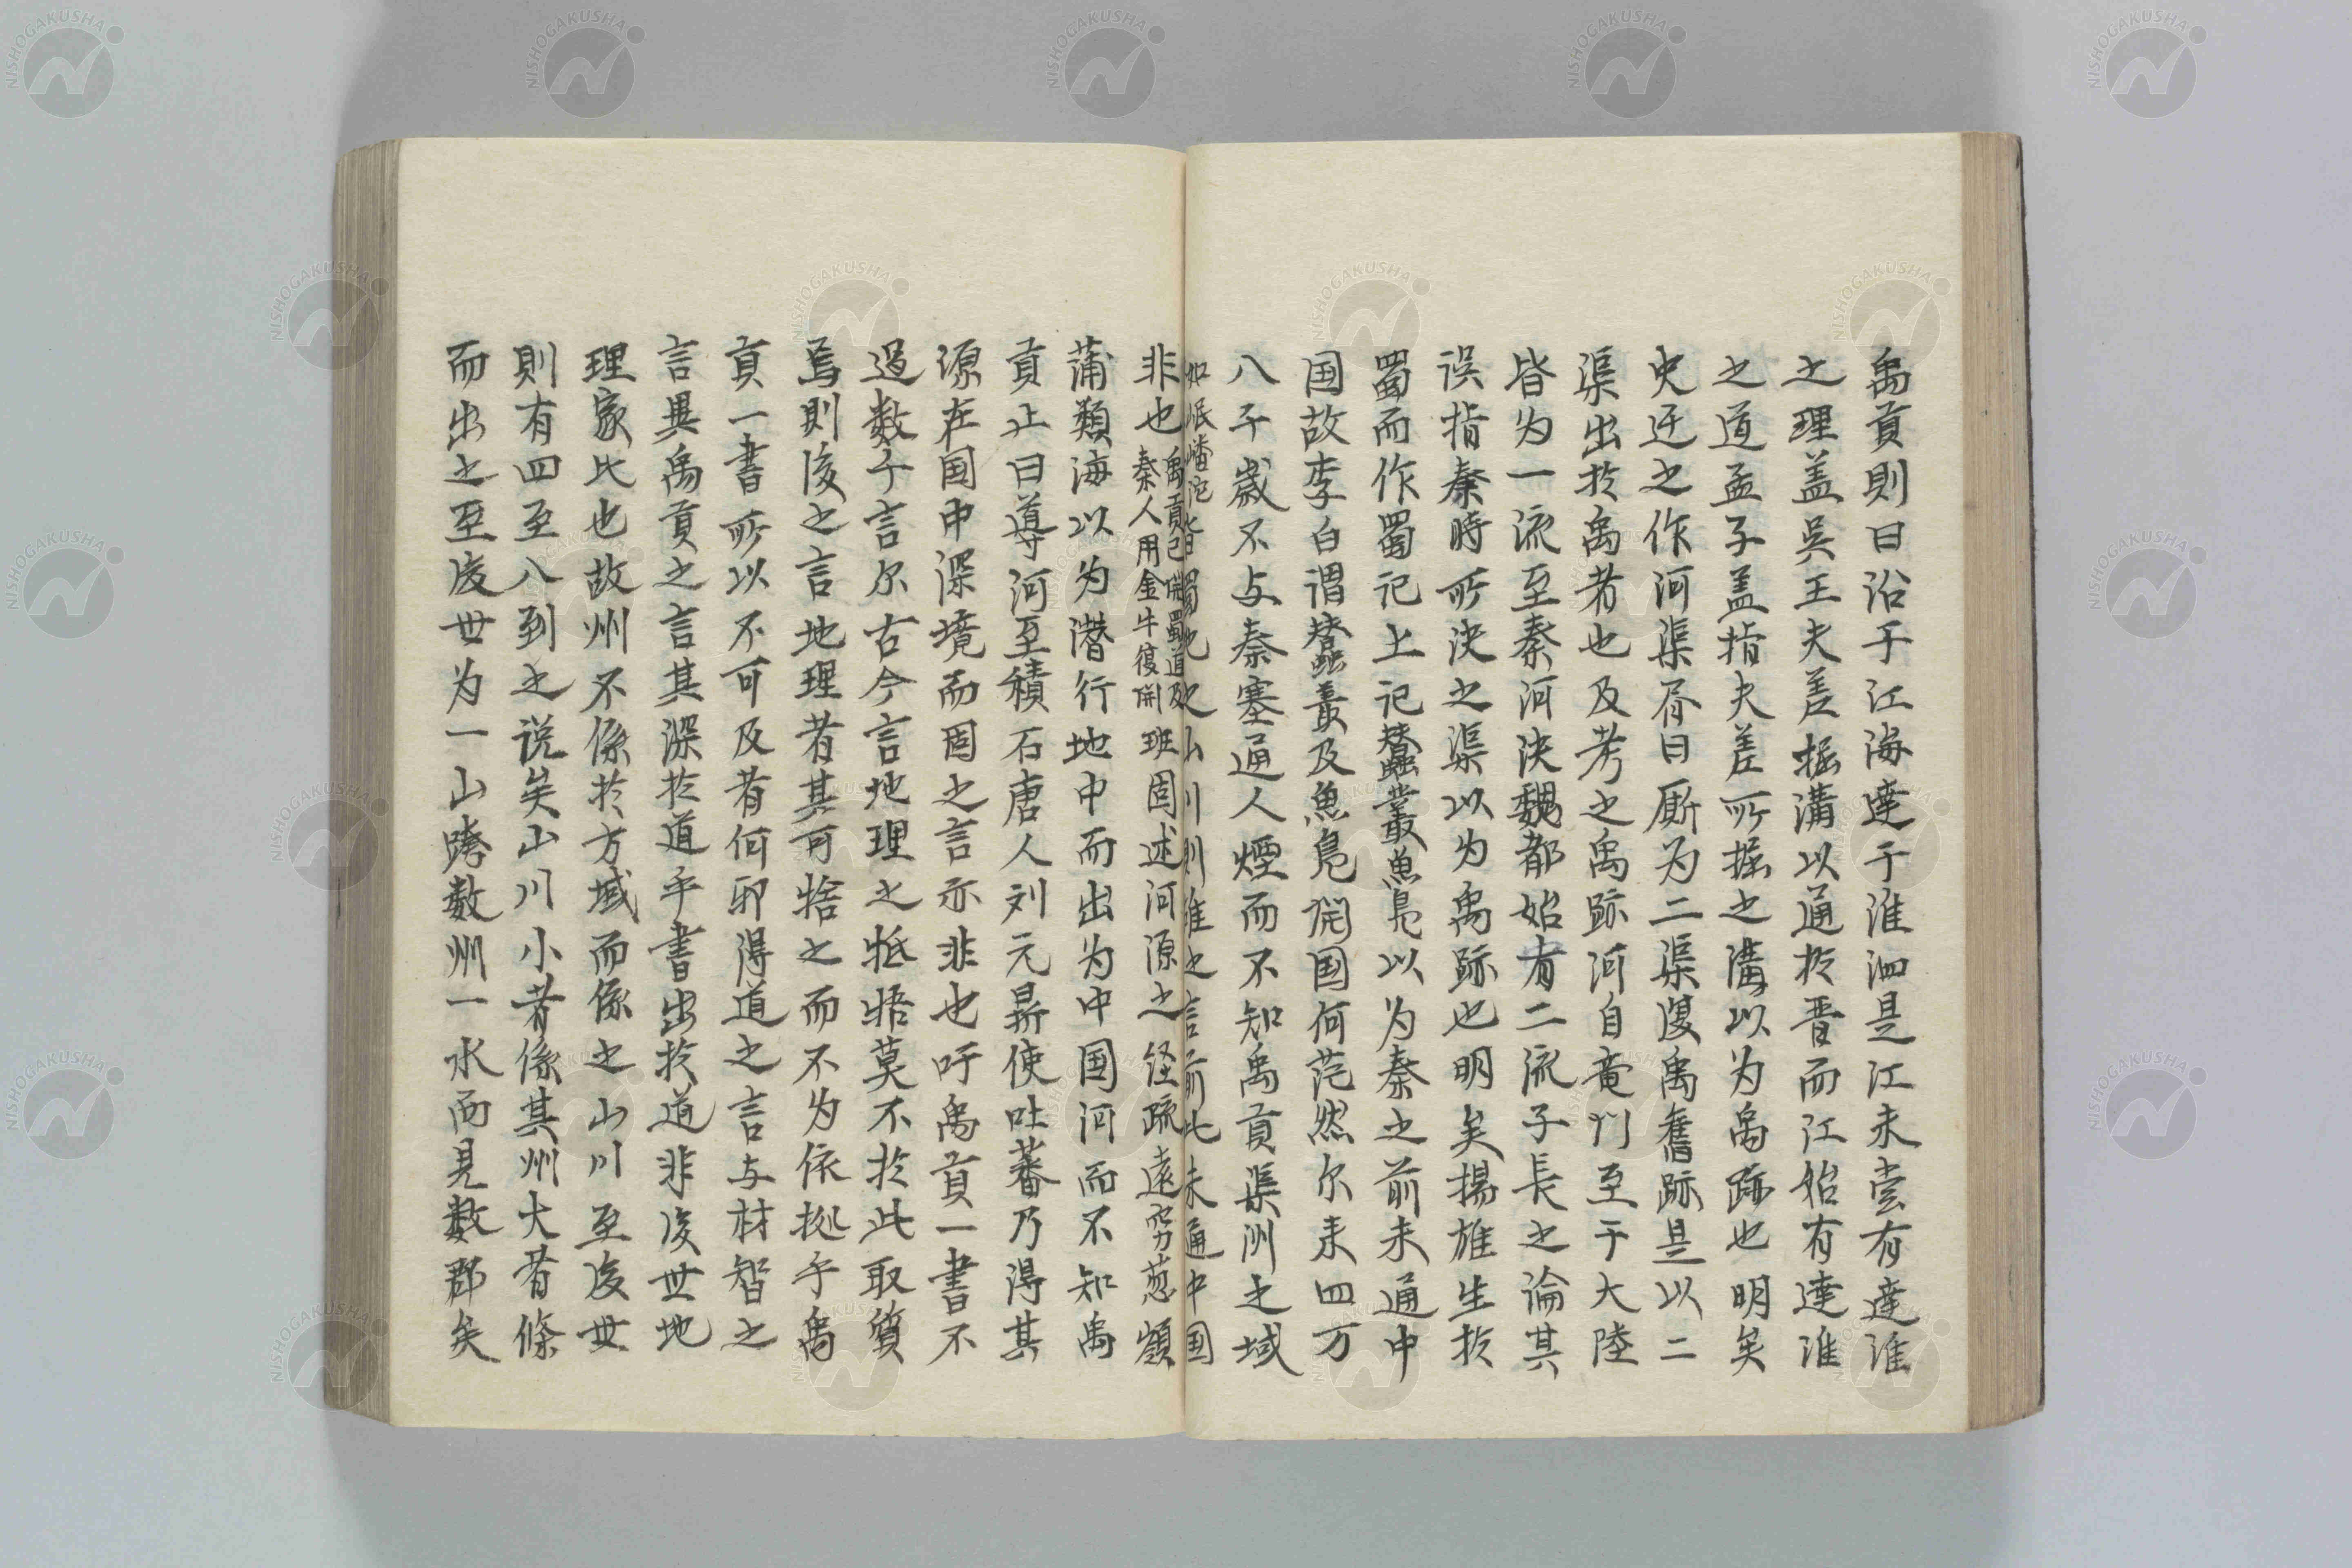 禹貢則曰沿于江海達于淮泗是江未嘗有達淮
之理盖吳王夫差掘溝以通於晋而江始有達淮
之道孟子盖指夫差所掘之溝以为禹跡也明矣
史迁之作河渠䏽曰厮为二渠復禹舊跡是以二
渠出於禹者也及考之禹跡河自竜门至于大陸
皆为一流至秦河決魏都始有二流子長之論其
误指秦時所決之渠以为禹跡也明矣揚雄生於
蜀而作蜀记上记蠶叢魚鳧以为秦之前未通中
国故李白谓蠶叢及魚鳧開国何茫然尔来四万
八千歳不与秦塞通人煙而不知禹貢渠洲之域
如岷嶓沱皆蜀地之山川則雄之言前此未通中国
非也禹貢已開蜀道及秦人用金牛復開班固述河源之经疏遠窮葱嶺
蒲類海以为潜行地中而出为中国河而不知禹
貢止曰導河至積石唐人刘元鼎使吐蕃乃得其
源在国中深境而固之言亦非也吁禹貢一書不
过数千言尔古今言地理之牴牾莫不於此取質
焉則後之言地理者其可捨之而不为依拠乎禹
貢一書所以不可及者何耶得道之言与材智之
言異禹貢之言其深於道乎書出於道非後世地
理家比也故州不係於方域而係之山川至後世
則有四至八到之说矣山川小者係其州大者條
而出之至後世为一山跨数州一水而見数郡矣
NISHOGAKUSHA